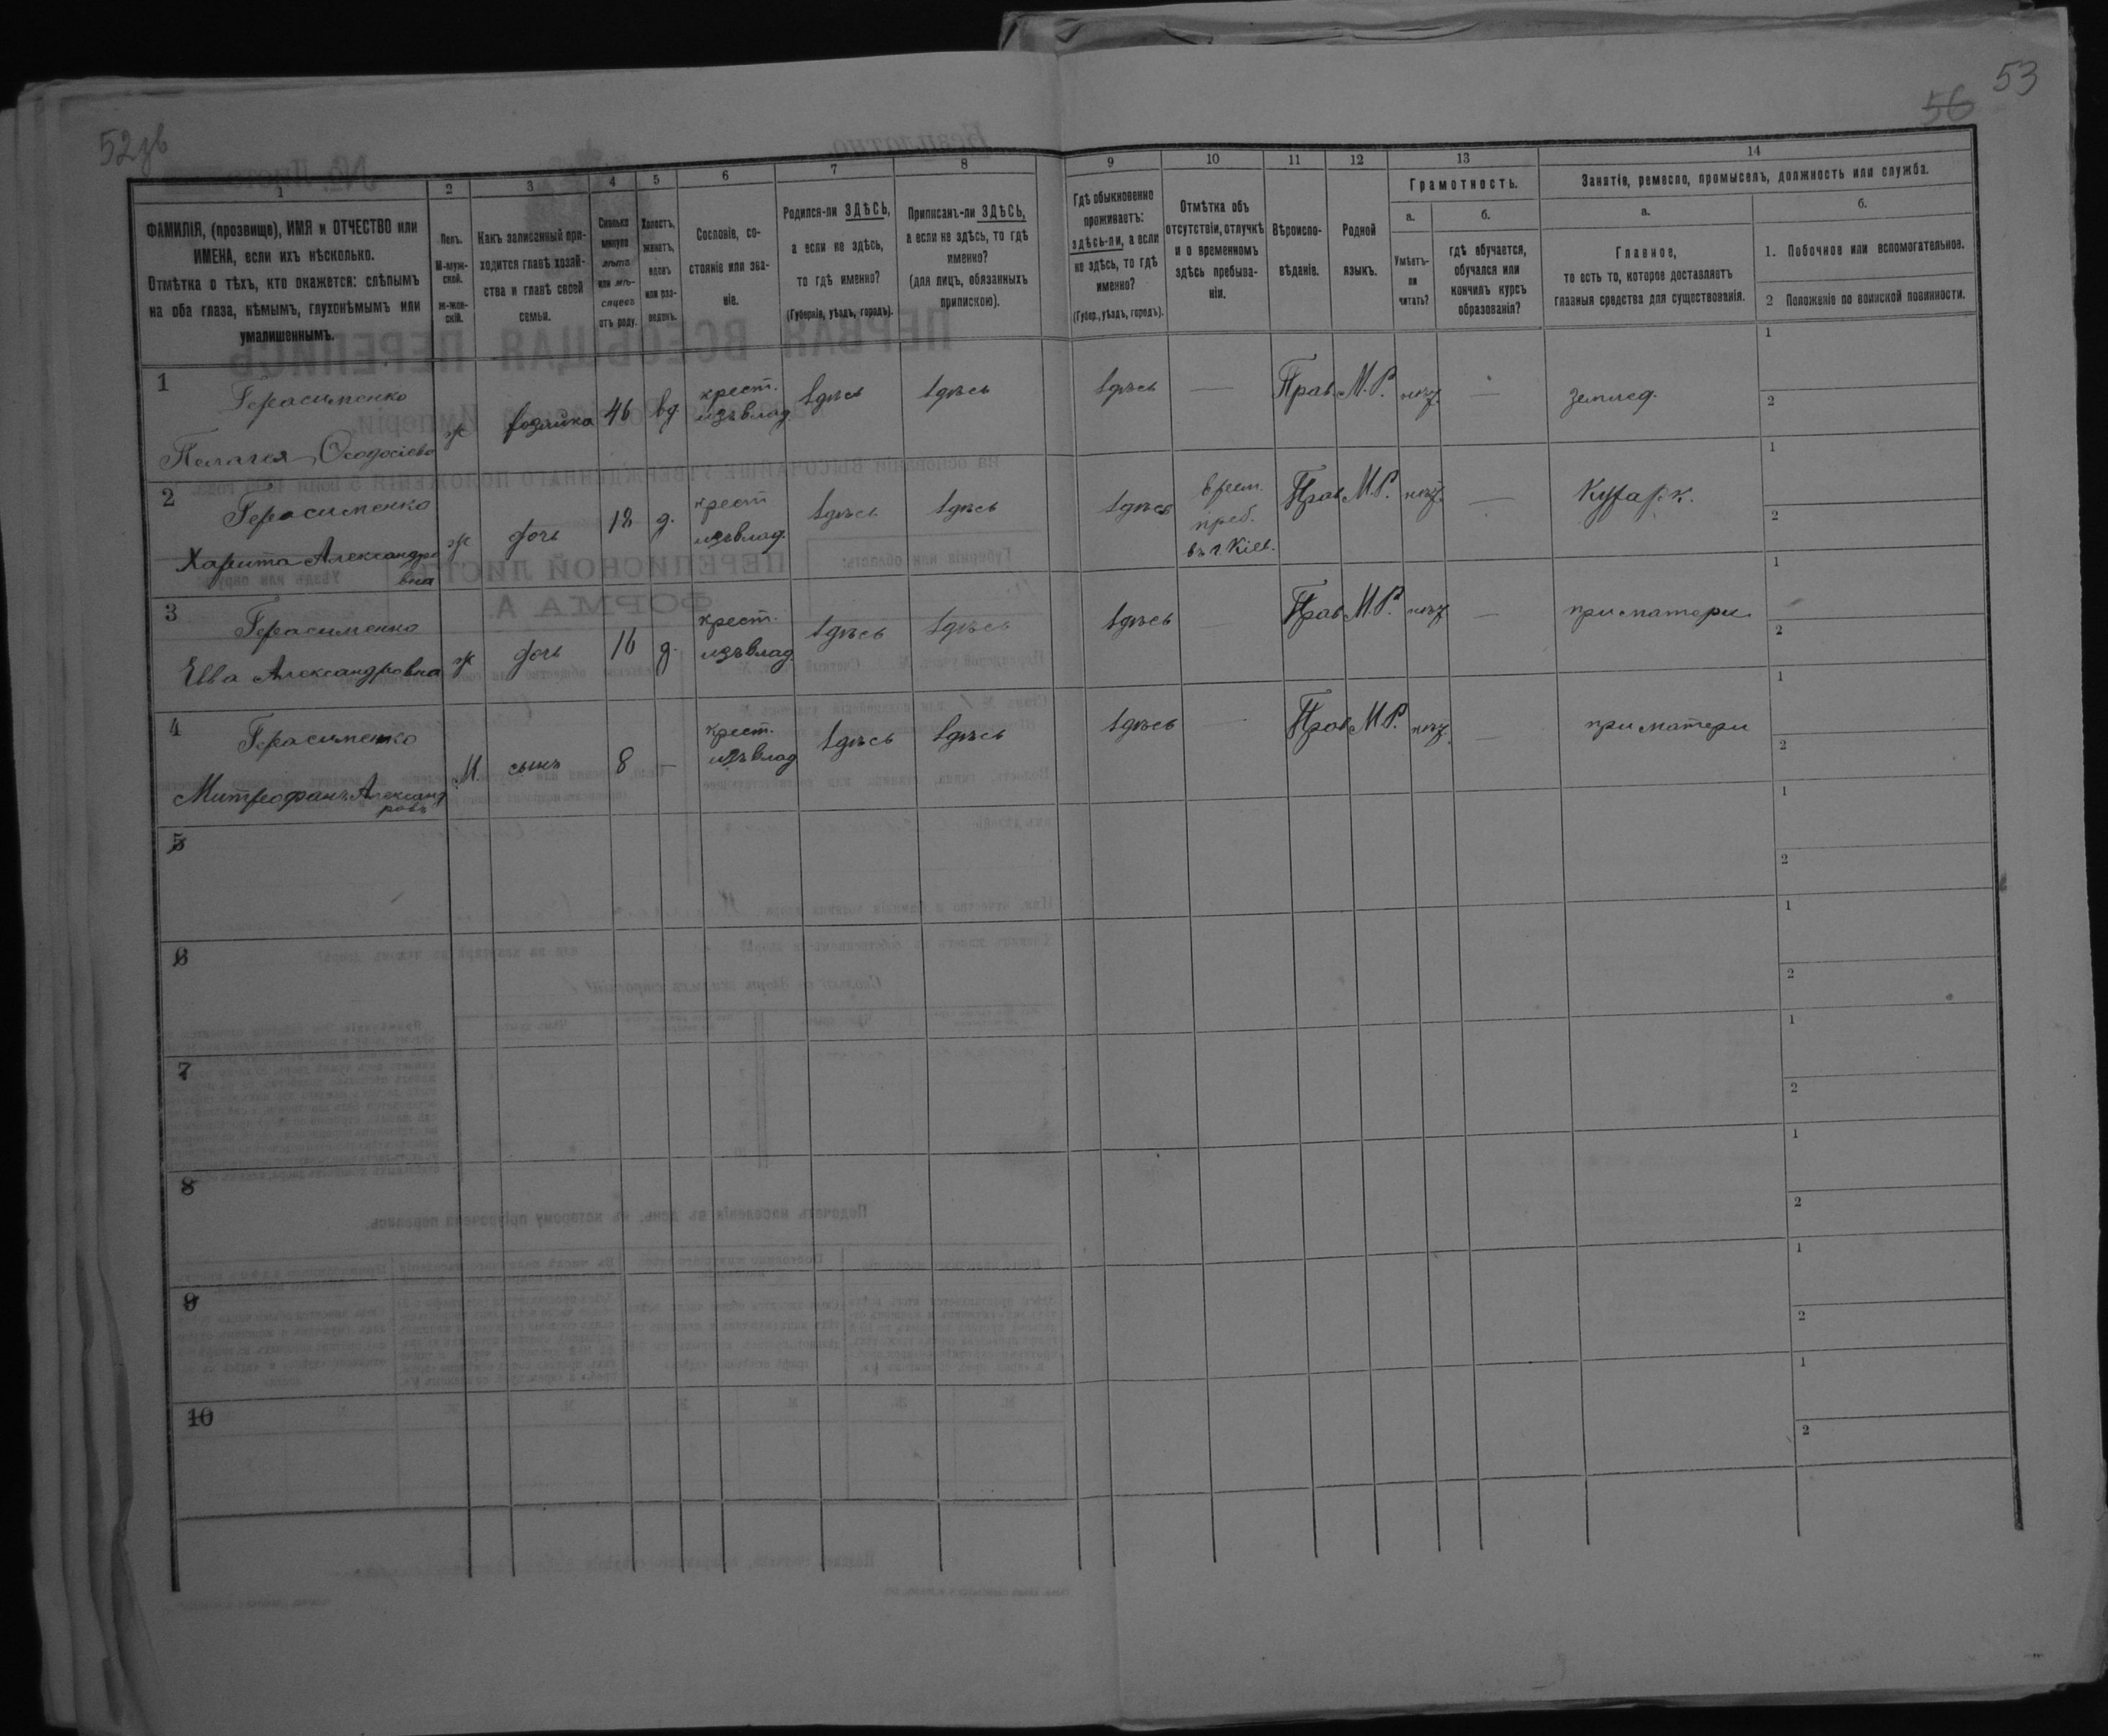 52 зв
56
53
1
2
3
4
5
6
7
8
9
10
11
12
13
14
ФАМИЛІЯ, (прозвище), ИМЯ и ОТЧЕСТВО или
ИМЕНА, если ихъ нѣсколько.
Отмѣтка о тѣхъ, кто окажется: слѣпымъ
на оба глаза, нѣмымъ, глухонѣмымъ или
умалишеннымъ.
Полъ.
М-муж-
ской.
ж-жен-
скій.
Какъ записанный при-
ходится главѣ хозяй-
ства и главѣ своей
семьи.
Сколько
минуло
лѣтъ
или мѣ-
сяцевъ
отъ роду.
Холостъ,
женатъ,
вдовъ
или раз-
веденъ.
Сословіе, со-
стояніе или зва-
ніе.
Родился-ли ЗДѢСЬ,
а если не здѣсь,
то гдѣ именно?
(Губернія, уѣздъ, городъ).
Приписанъ-ли ЗДѢСЬ,
а если не здѣсь, то гдѣ
именно?
(для лицъ, обязанныхъ
припискою).
Гдѣ обыкновенно
проживаетъ:
здѣсь-ли, а если
не здѣсь, то гдѣ
именно?
(Губер., уѣздъ, городъ).
Отмѣтка объ
отсутствіи, отлучкѣ
и о временномъ
здѣсь пребыва-
ніи.
Вѣроиспо-
вѣданіе.
Родной
языкъ.
Грамотность.
а.
Умѣетъ-
ли
читать?
б.
гдѣ обучается,
обучался или
кончилъ курсъ
образованія?
Занятія, ремесло, промыселъ, должность или служба.
а.
Главное,
то есть то, которое доставляетъ
главныя средства для существованія.
б.
1. Побочное или вспомогательное.
2 Положеніе по воинской повинности.
1 Герасименко
Пелагея Ѳеодосіева
ж хозяйка 46 вд. крест. изъ влад. здѣсь здѣсь здѣсь — Прав. М.Р. нѣтъ — землед. 1 2
2 Герасименко
Харита Александро
вна
ж дочь 18 д. крест изъ влад. здѣсь здѣсь здѣсь врем. преб. въ г. Кіев. Прав М.Р. нѣтъ — Кухарк. 1 2
3 Герасименко
Евва Александровна
ж дочь 16 д. крест. изъ влад. здѣсь здѣсь здѣсь — Прав М.Р. нѣтъ — при матери 1 2
4 Герасименко
Митрофанъ Александ
ровъ
М. сынъ 8 — крест. изъ влад здѣсь здѣсь здѣсь — Прав М.Р. нѣтъ — при матери 1 2
5 1 2
6 1 2
7 1 2
8 1 2
9 1 2
10 1 2